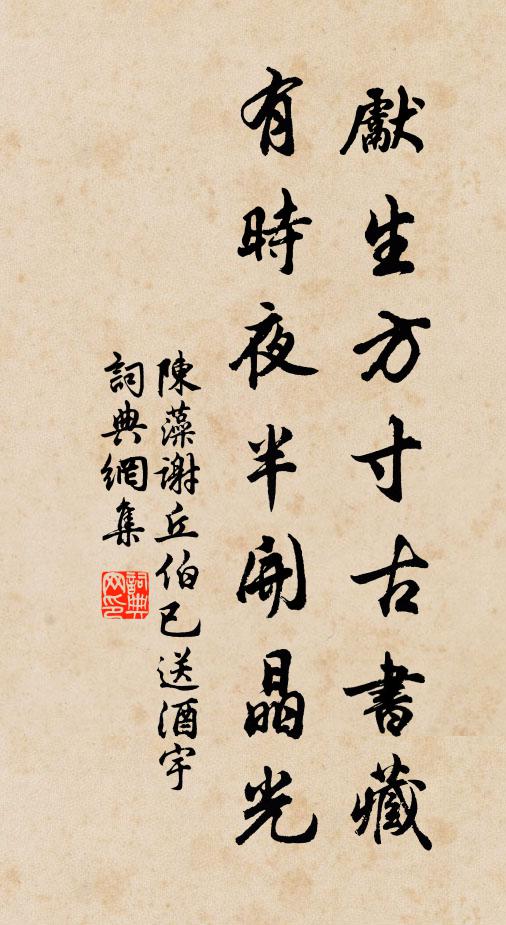 獻生方寸古書藏
有時夜半開晶光
陳藻謝丘伯已送酒字
詞典網集
詞典網印